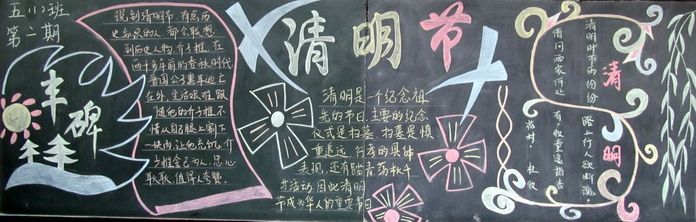 五(1)班
第二期
丰碑
说到清明节,有点历
史知识的人,都会联想
到历史人物介子推,在
两千多年前的春秋时代
晋国公子重耳逃亡
在外,生活艰难,跟
随他的介子推不
惜从自己腿上割下
一块肉,让他充饥,介
子推舍己为人,忠心
耿耿值得人夸赞。
清明节
清明是一个纪念祖
先的节日,主要的纪念
仪式是扫墓,扫墓是慎
重追远、行孝的具体
表现,还有踏青荡秋千
等活动,因此清明
节成为华人的重要节日
清明
清明时节雨纷纷
路上行人欲断魂。
借问酒家何处
有,牧童遥指杏
花村
杜牧